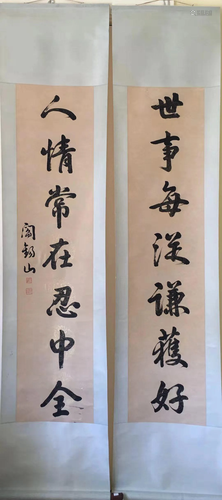 世事每從謙獲好
人情常在忍中全
閻錫山